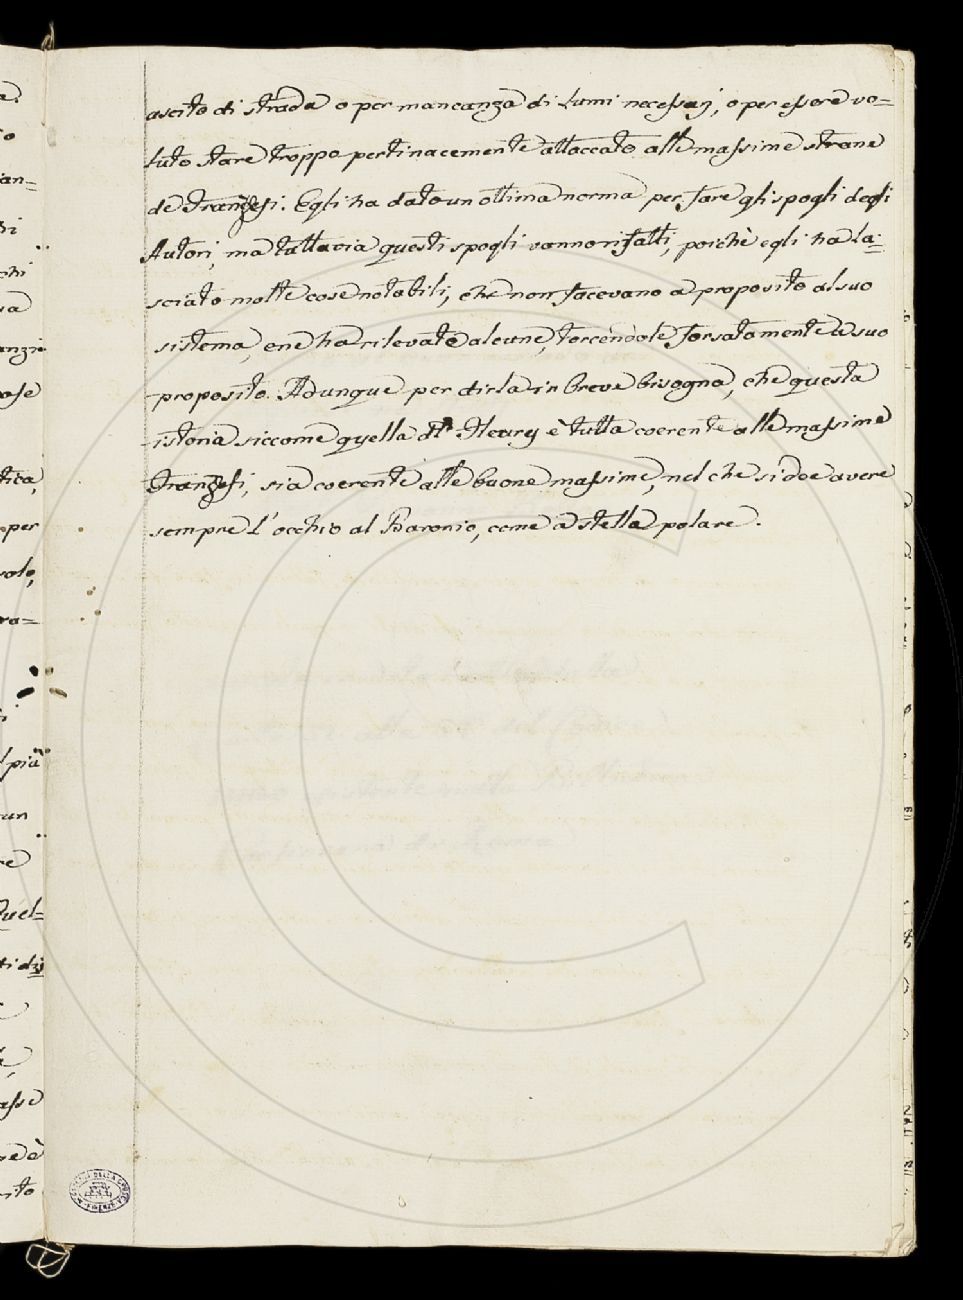 ascito di strada o per mancanza di lumi necessarj, o per essere vo=
luto stare troppo pertinacemente attaccato alle massime strane
de Franzesi. Egli ha dato un ottima norma per fare gli spogli degli
Autori, ma tuttavia questi spogli vanno rifatti, poichè egli ha la=
sciato molte cose notabili, che non facevano a proposito al suo
sistema, e ne ha rilevate alcune, torcendole forsatamente a suo
proposito. Adunque per dirla in breve bisogna, che questa
istoria siccome quella di Fleury è tutta coerente alle massime
Franzesi, sia coerente alle buone massime, nel che si dee avere
sempre l'occhio al Baronio, come a stella polare.